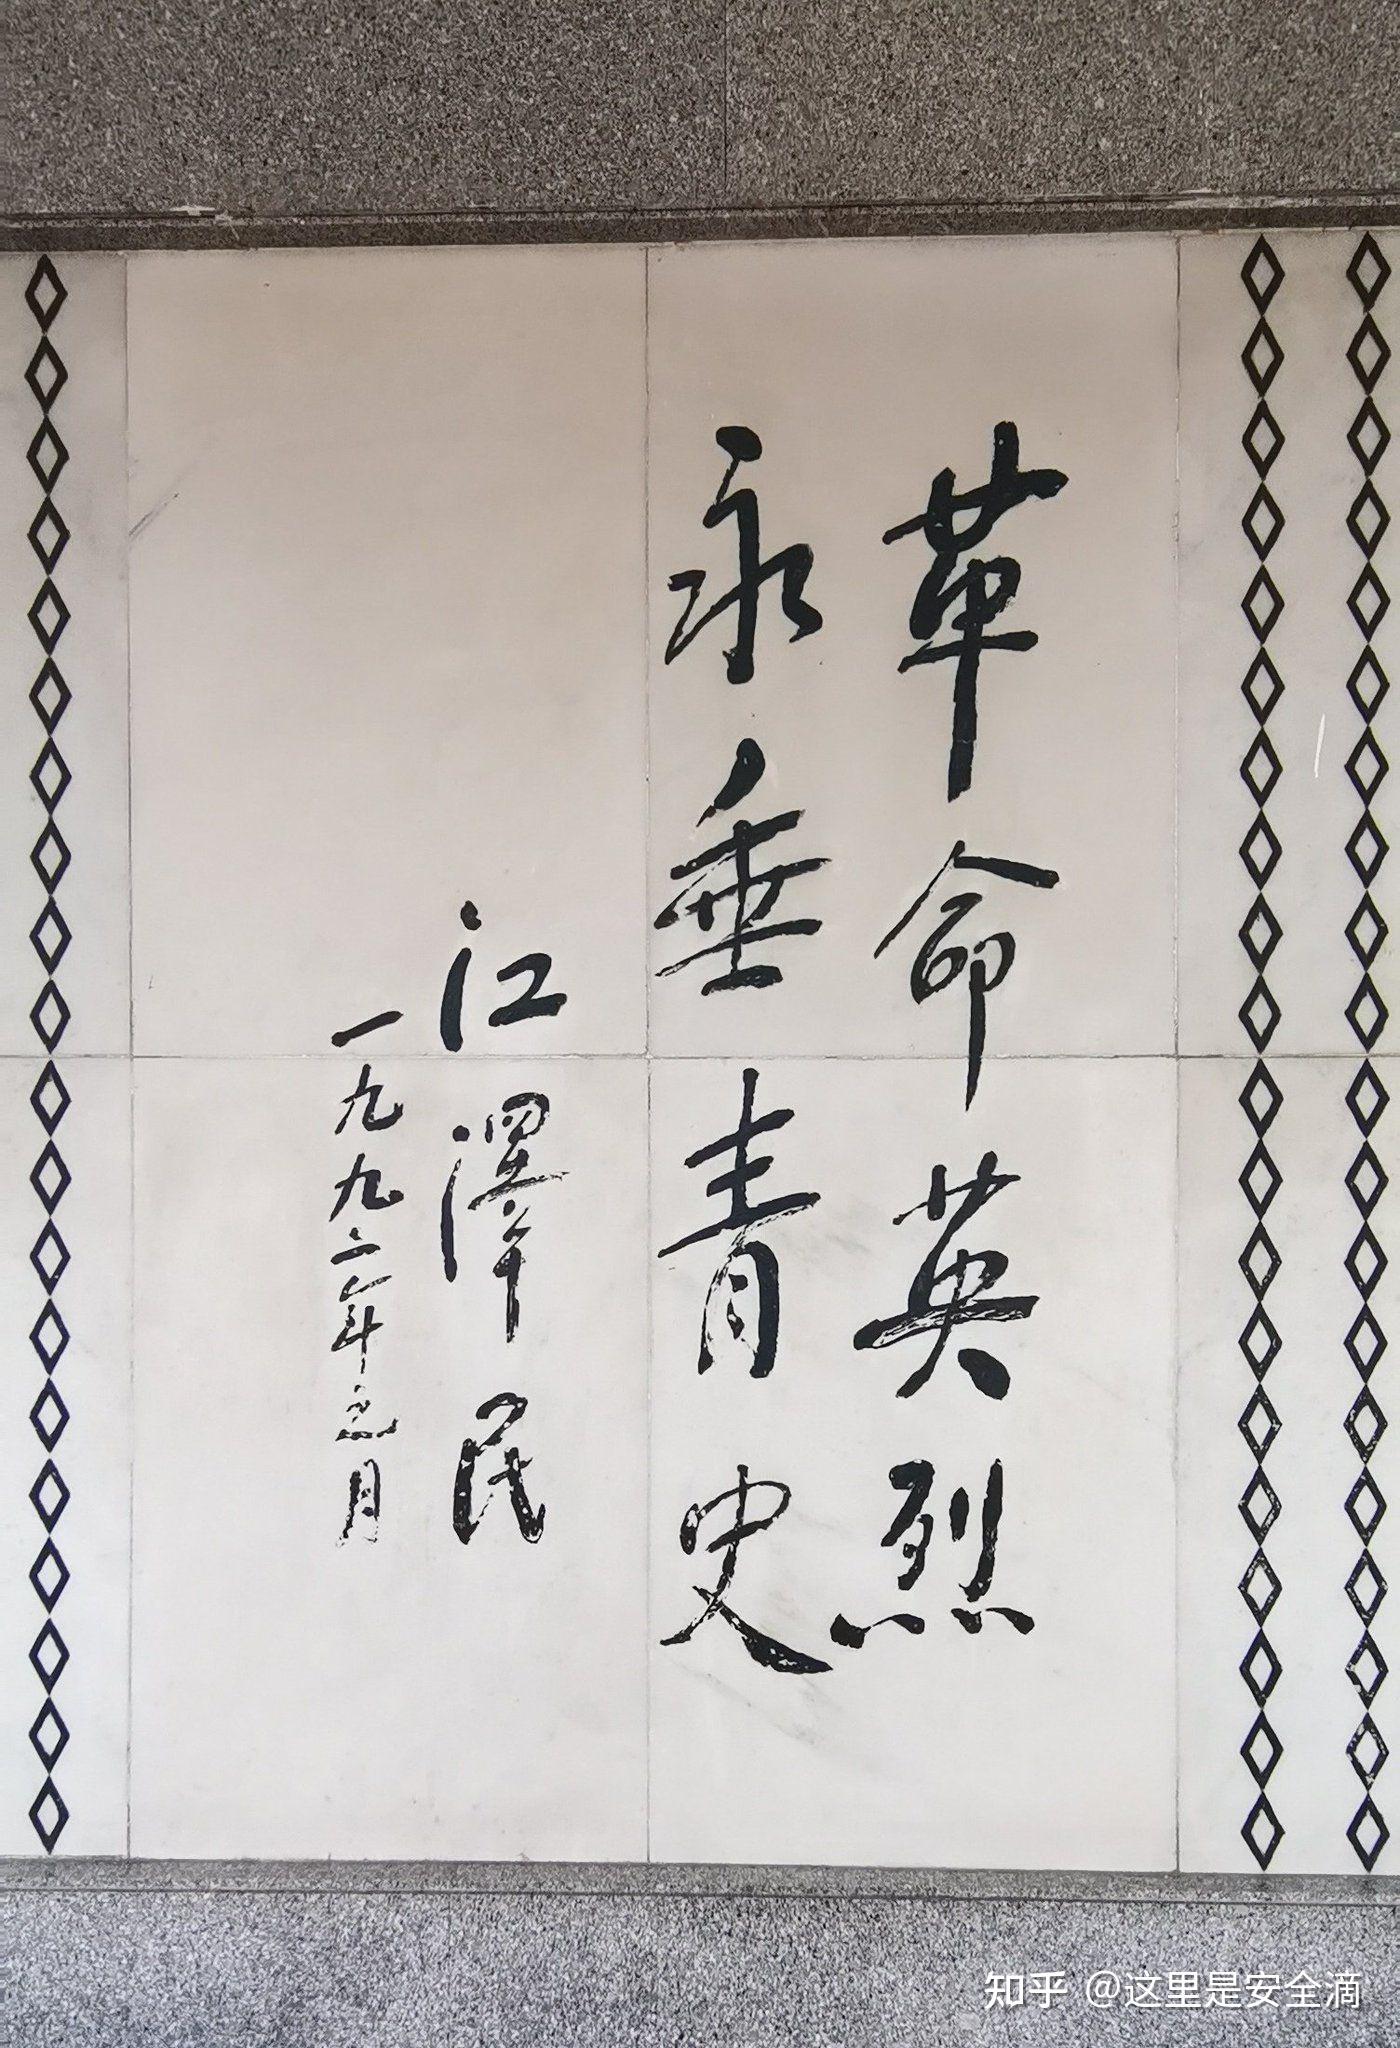 革命英烈
永垂青史
江澤民
一九九二年三月
知乎 @这里是安全滴